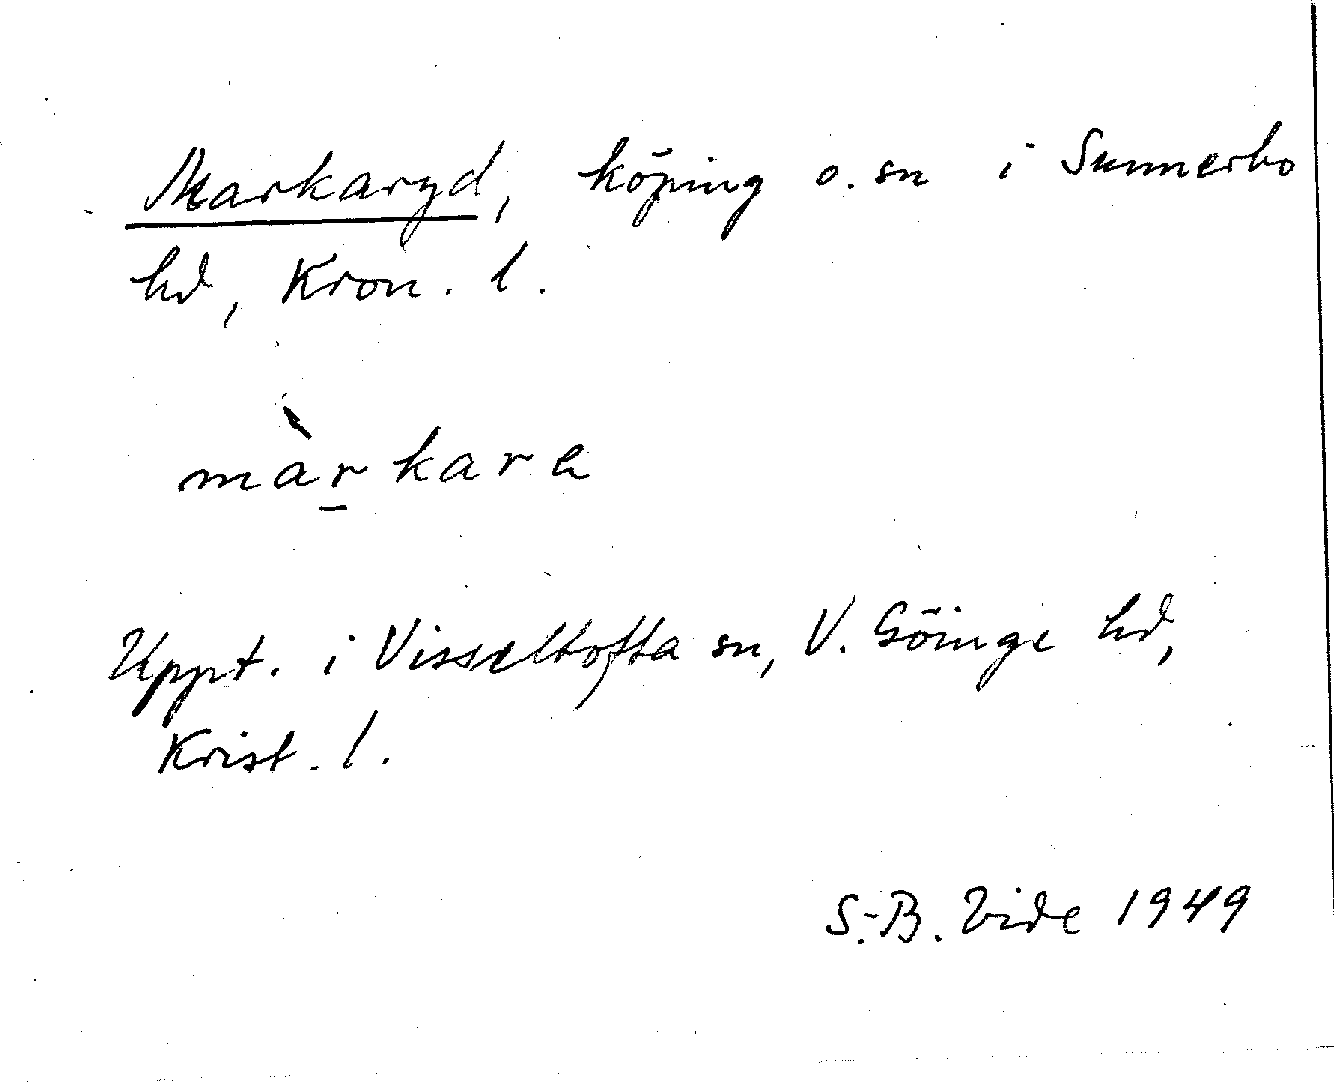 Markaryd, köping o. sn i Sunnerbo
hd, Kron. l.
màr̲kara
Uppt. i Visseltofta sn, V. Göinge hd,
Krist. l.
S.-B. Vide 1949